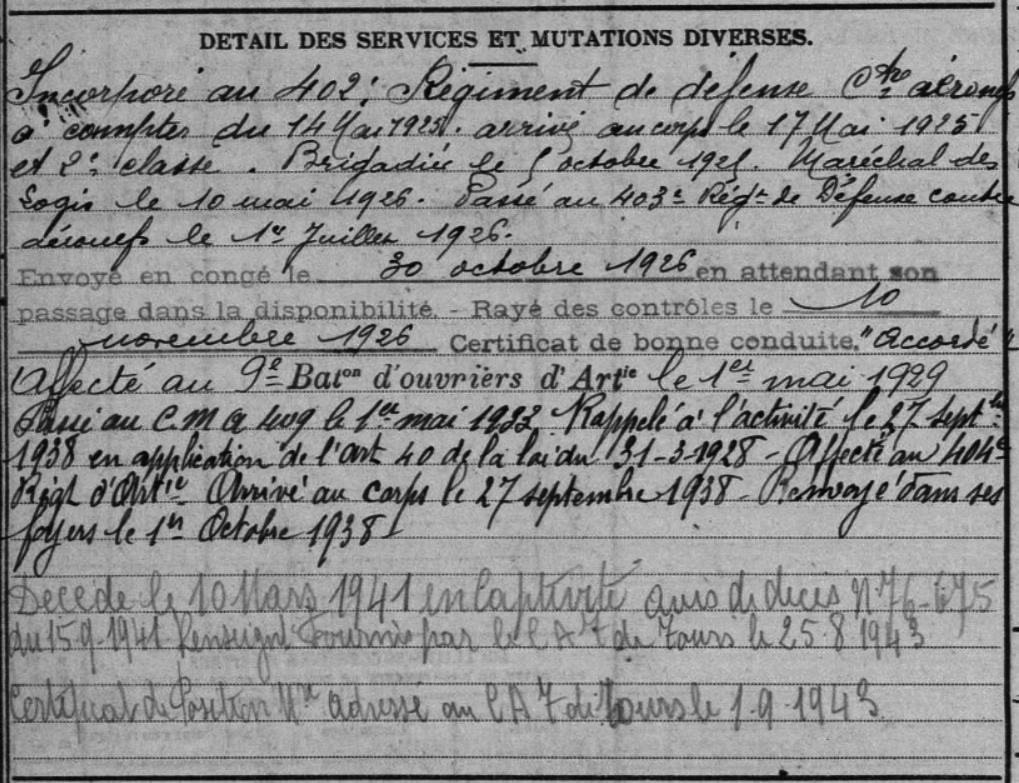 DETAIL DES SERVICES ET MUTATIONS DIVERSES.
Incorporé au 402e Régiment de défense Ctre aéronefs
à compter du 14 Mai 1925. arrivé au corps le 17 Mai 1925
et 2e classe. Brigadier le 5 octobre 1925. Maréchal des
Logis le 10 mai 1926. Passé au 403e Régt de Défense contre
aéronefs le 1er Juillet 1926.
Envoyé en congé le 30 octobre 1926 en attendant son
passage dans la disponibilité. - Rayé des contrôles le 10
novembre 1926 Certificat de bonne conduite. "Accordé"
Affecté au 9e Baton d'ouvriers d'Artie le 1er mai 1929
Passé au C.M.A 409 le 1er mai 1932 Rappelé à l'activité le 27 septbre
1938 en application de l'art 40 de la loi du 31-3-1928 - Affecté au 404e
Régt d'Artie Arrivé au corps le 27 septembre 1938 - Renvoyé dans ses
foyers le 1er Octobre 1938 -
Décédé le 10 Mars 1941 en Captivité avis de décès N° 76-675
du 15 9 1941 Renseignt Fournis par le C A 7 de Tours le 25 8 1943
Certificat de Position Mre adressé au C A 7 de Tours le 1.9.1943